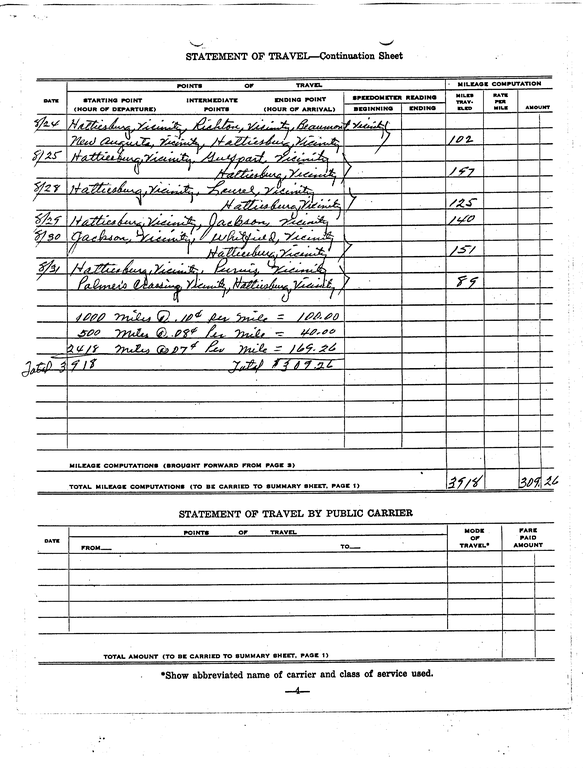 STATEMENT OF TRAVEL—Continuation Sheet
POINTS OF TRAVEL MILEAGE COMPUTATION
DATE STARTING POINT INTERMEDIATE ENDING POINT SPEEDOMETER READING MILES TRAV- ELED RATE PER MILE AMOUNT
(HOUR OF DEPARTURE) POINTS (HOUR OF ARRIVAL) BEGINNING ENDING
8/24 Hattiesburg, Vicinity, Richton, Vicinity, Beaumont Vicinity
New Augusta, Vicinity, Hattiesburg, Vicinity 102
8/25 Hattiesburg, Vicinity, Gulfport, Vicinity
Hattiesburg, Vicinity 157
8/28 Hattiesburg, Vicinity, Laurel, Vicinity
Hattiesburg, Vicinity 125
8/29 Hattiesburg, Vicinity, Jackson, Vicinity 140
8/30 Jackson, Vicinity, Whitfield, Vicinity
Hattiesburg, Vicinity 151
8/31 Hattiesburg, Vicinity, Purvis, Vicinity
Palmer's Crossing Vicinity, Hattiesburg, Vicinity 89
1000 miles @ .10¢ per mile = 100.00
500 miles @ .08¢ Per mile = 40.00
2418 miles @ 07¢ Per mile = 169.26
Total 3918 Total $309.26
MILEAGE COMPUTATIONS (BROUGHT FORWARD FROM PAGE 3)
TOTAL MILEAGE COMPUTATIONS (TO BE CARRIED TO SUMMARY SHEET, PAGE 1) 3918 309.26
STATEMENT OF TRAVEL BY PUBLIC CARRIER
DATE POINTS OF TRAVEL MODE OF TRAVEL* FARE PAID AMOUNT
FROM__ TO__
TOTAL AMOUNT (TO BE CARRIED TO SUMMARY SHEET, PAGE 1)
*Show abbreviated name of carrier and class of service used.
—4—